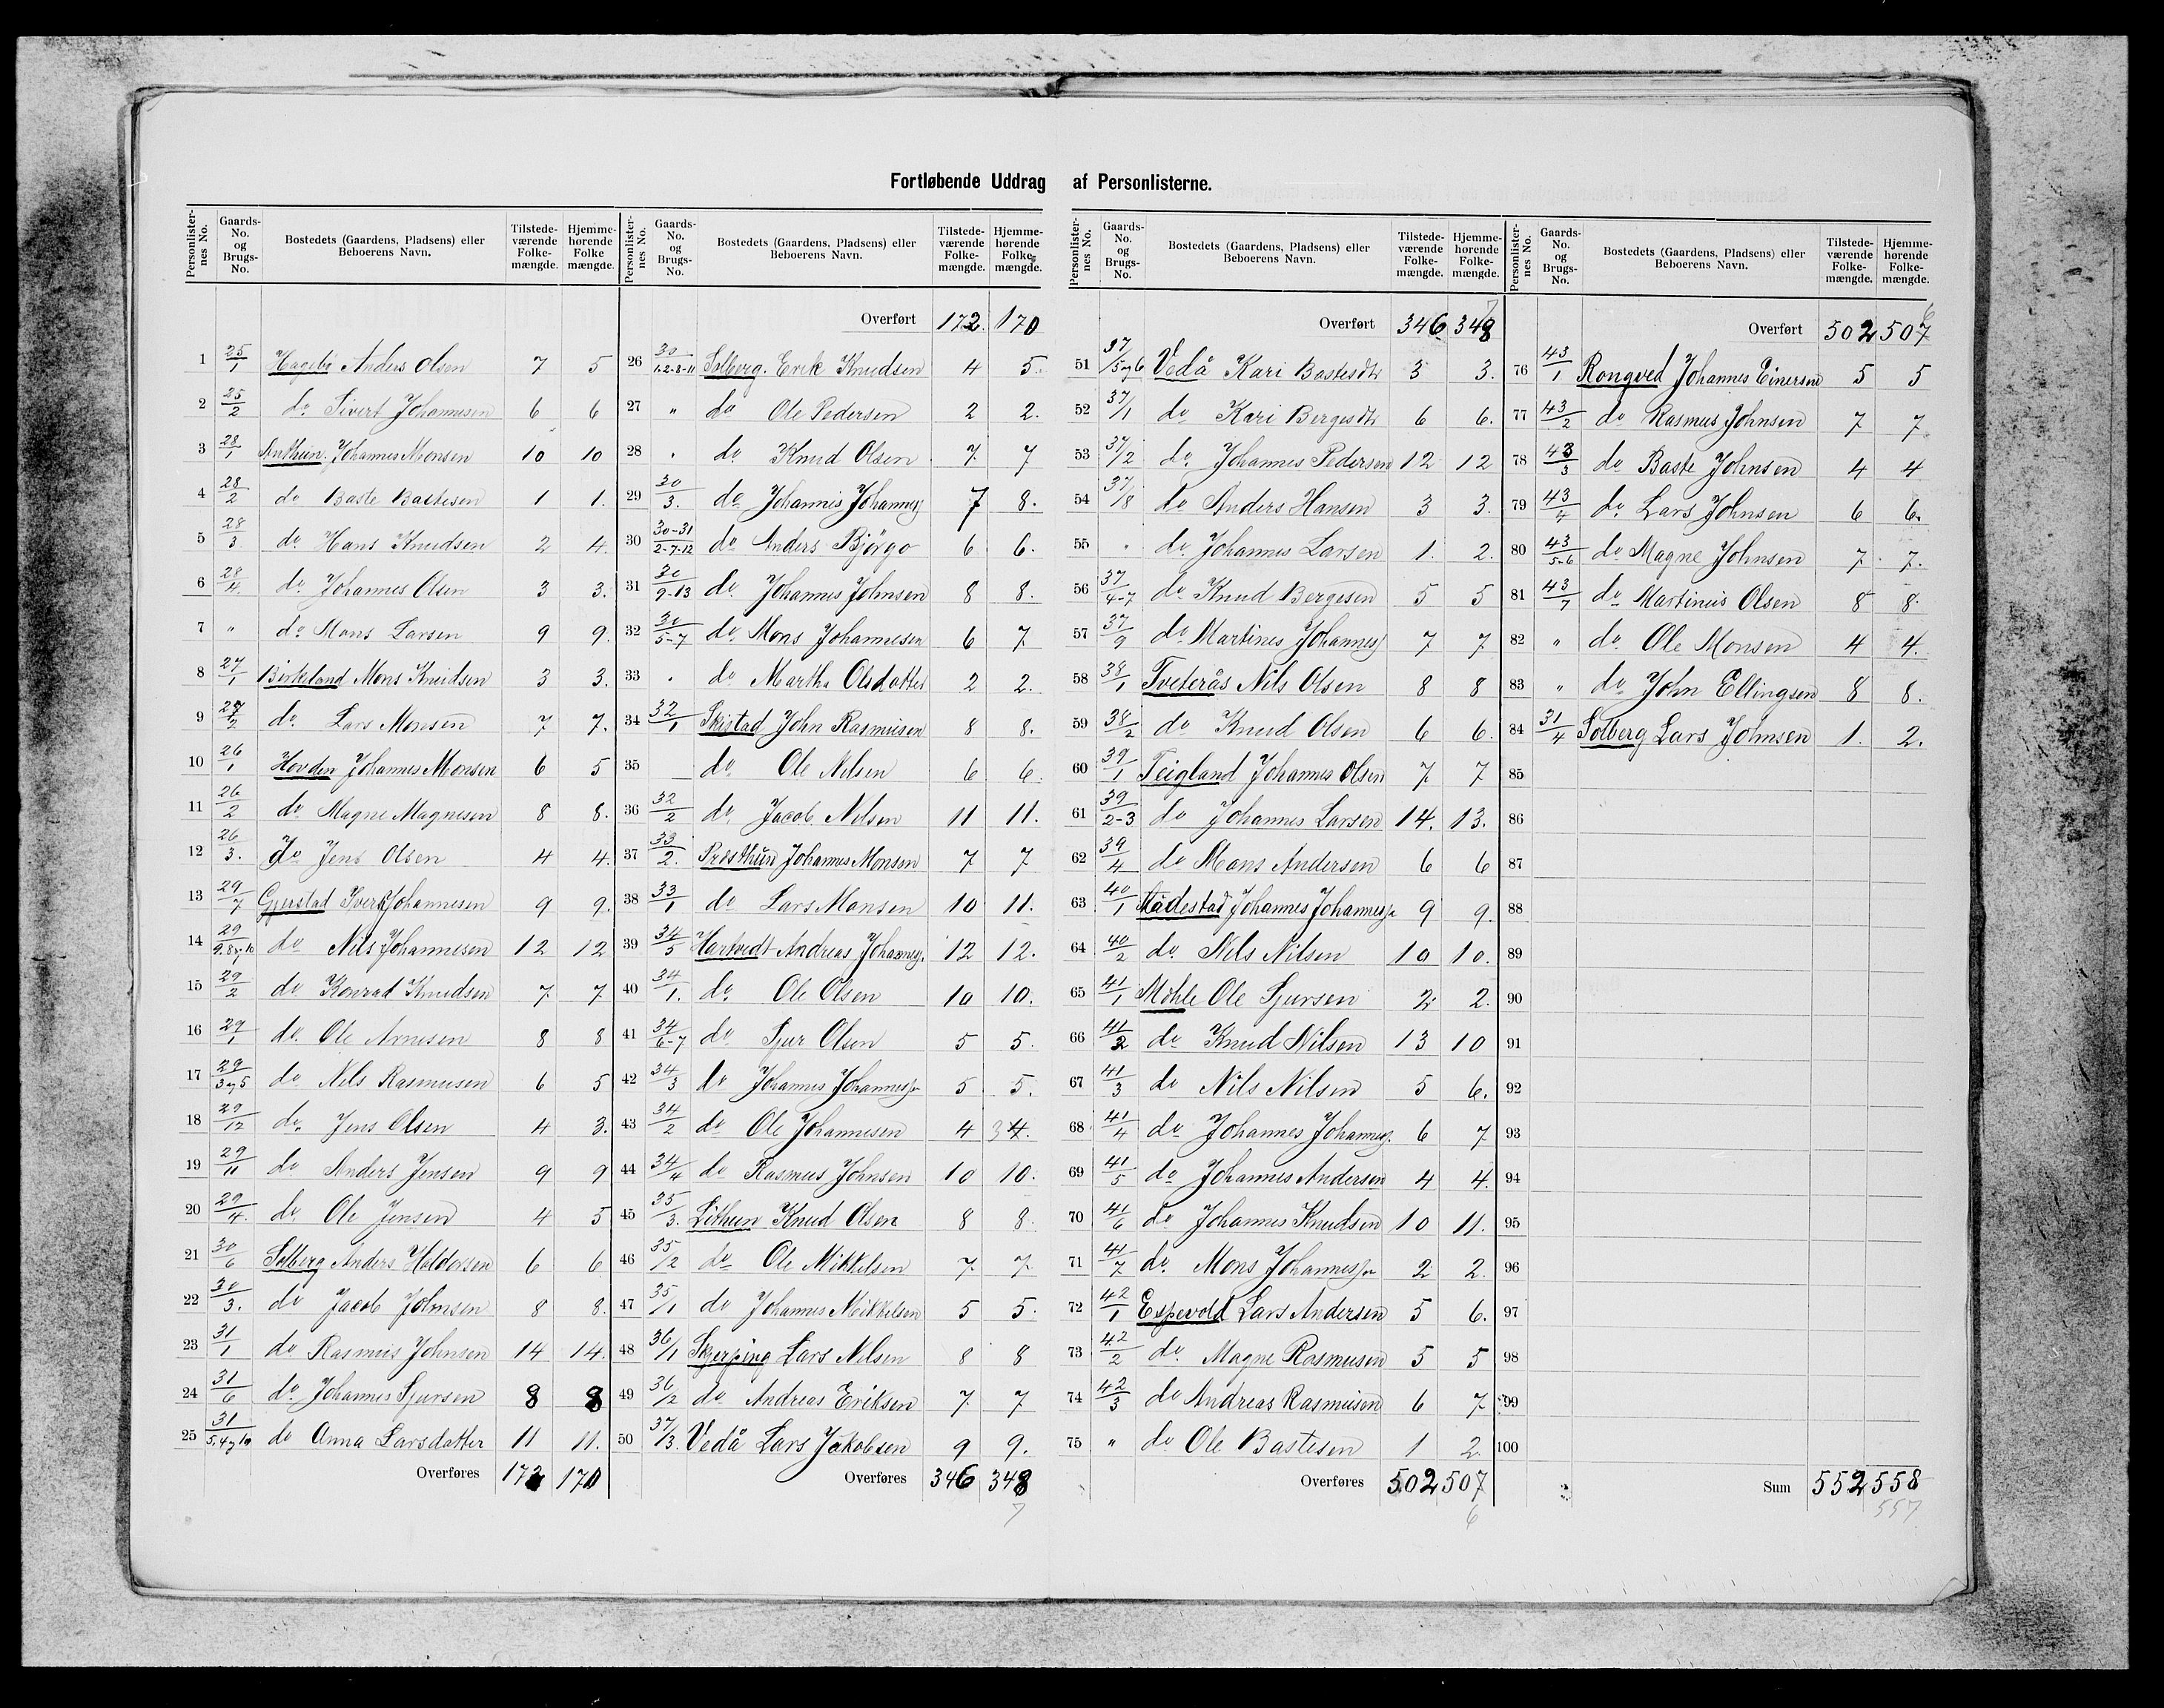 Fortløbende Uddrag af Personlisterne.
Personlisternes No. | Gaards-No. og Brugs-No. | Bostedets (Gaardens, Pladsens) eller Beboerens Navn. | Tilstedeværende Folkemængde. | Hjemmehørende Folkemængde.
1 25/1 Hagebø Anders Olsen 7 5
2 25/2 do Sivert Johannesen 6 6
3 28/1 Anthun. Johannes Monsen 10 10
4 28/2 do Baste Bastesen 1 1.
5 28/3 do Hans Knudsen 2 4.
6 28/4. do Johannes Olsen 3 3.
7 " do Mons Larsen 9 9.
8 27/1 Birkeland Mons Knudsen 3 3.
9 27/2 do Lars Monsen 7 7.
10 26/1 Hovden Johannes Monsen 6 5
11 26/2 do Magne Magnesen 8 8.
12 26/3. do Jens Olsen 4 4.
13 29/7 Gjerstad Iver Johannesen 9 9.
14 29/9.8og10 do Nils Johannesen 12 12
15 29/2 do Konrad Knudsen 7 7
16 29/1 do. Ole Arnesen 8 8
17 29/3og5 do Nils Rasmusen 6 5
18 29/12 do. Jens Olsen 4 3.
19 29/11 do Anders Jensen 9 9
20 29/4. do Ole Jensen 4 5
21 30/6 Solberg Anders Haldorsen 6 6
22 30/3. do Jacob Johnsen 8 8.
23 31/1 do Rasmus Johnsen 14 14.
24 31/6 do Johannes Sjursen 8 8
25 31/5.4og10 do Anna Larsdatter 11 11.
Overføres 172 170
Personlisternes No. | Gaards-No. og Brugs-No. | Bostedets (Gaardens, Pladsens) eller Beboerens Navn. | Tilstedeværende Folkemængde. | Hjemmehørende Folkemængde.
Overført 172. 170
26 30/1.2-8-11 Solberg. Erik Knudsen 4 5.
27 " do Ole Pedersen 2 2.
28 " do Knud Olsen 7 7
29 30/3. do Johannes Johannes 7 8.
30 30-31/2-7-12 do Anders Bjørgo 6 6.
31 30/9-13 do. Johannes Johnsen 8 8.
32 30/5-7 do. Mons Johannesen 6 7
33 " do Martha Olsdatter 2 2.
34 32/1 Skistad John Rasmusen 8 8.
35 do Ole Nilsen 6 6.
36 32/2 do Jacob Nilsen 11 11.
37 33/2. Presthun Johannes Monsen 7 7
38 33/1 do Lars Monsen 10 11.
39 34/5 Hartvedt Andreas Johannes. 12 12.
40 34/1. do Ole Olsen 10 10.
41 34/6-7 do Sjur Olsen 5 5.
42 34/3 do Johannes Johannessn 5 5.
43 34/2 do Ole Johannesen 4 3 4.
44 34/4 do Rasmus Johnsen 10 10.
45 35/3. Lithun Knud Olsen 8 8.
46 35/2 do Ole Mikkelsen 7 7.
47 35/1 do Johannes Mikkelsen 5 5.
48 36/1 Skjerping Lars Nilsen 8 8
49 36/2 do Andreas Eriksen 7 7
50 37/3. Vedå Lars Jakobsen 9 9.
Overføres 346 348
7
Personlisternes No. | Gaards-No. og Brugs-No. | Bostedets (Gaardens, Pladsens) eller Beboerens Navn. | Tilstedeværende Folkemængde. | Hjemmehørende Folkemængde.
7
Overført 346 348
51 37/5og6 Vedå Kari Bastesdtr 3 3.
52 37/1 do Kari Bergesdtr 6 6.
53 37/2 do. Johannes Pedersen 12 12
54 37/8 do Anders Hansen 3 3.
55 " do Johannes Larsen 1. 2.
56 37/4-7 do Knud Bergesen 5 5
57 37/9 do Martines Johannes 7 7
58 38/1 Tveterås Nils Olsen 8 8
59 38/2 do Knud Olsen 6 6.
60 39/1 Teigland Johannes Olsen 7 7
61 39/2-3 do Johannes Larsen 14. 13.
62 39/4 do Mons Andersen 6 6
63 40/1 Stadestad Johannes Johannessn 9 9.
64 40/2 do. Nils Nilsen 10 10.
65 41/1 Møhle Ole Sjursen 2 2.
66 41/2 do Knud Nilsen 13 10
67 41/3 do Nils Nilsen 5 6.
68 41/4 do Johannes Johannes. 6 7
69 41/5 do Johannes Andersen 4 4.
70 41/6 do Johannes Knudsen 10 11.
71 41/7 do. Mons Johannessn 2 2.
72 42/1 Espevold Lars Andersen 5 6.
73 42/2 do. Magne Rasmusen 5 5
74 42/3 do Andreas Rasmusen 6 7
75 " do Ole Bastesen 1 2.
Overføres 502 507
6
Personlisternes No. | Gaards-No. og Brugs-No. | Bostedets (Gaardens, Pladsens) eller Beboerens Navn. | Tilstedeværende Folkemængde. | Hjemmehørende Folkemængde.
6
Overført 502 507
76 43/1 Rongved Johannes Einersen 5 5
77 43/2 do Rasmus Johnsen 7 7.
78 43/3 do Baste Johnsen 4 4
79 43/4 do. Lars Johnsen 6 6.
80 43/5-6 do Magne Johnsen 7 7.
81 43/7 do Martinus Olsen 8 8.
82 " do. Ole Monsen 4 4.
83 " do John Ellingsen 8 8.
84 31/4 Solberg Lars Johnsen 1. 2.
85
86
87
88
89
90
91
92
93
94
95
96
97
98
99
100
Sum 552 558
557